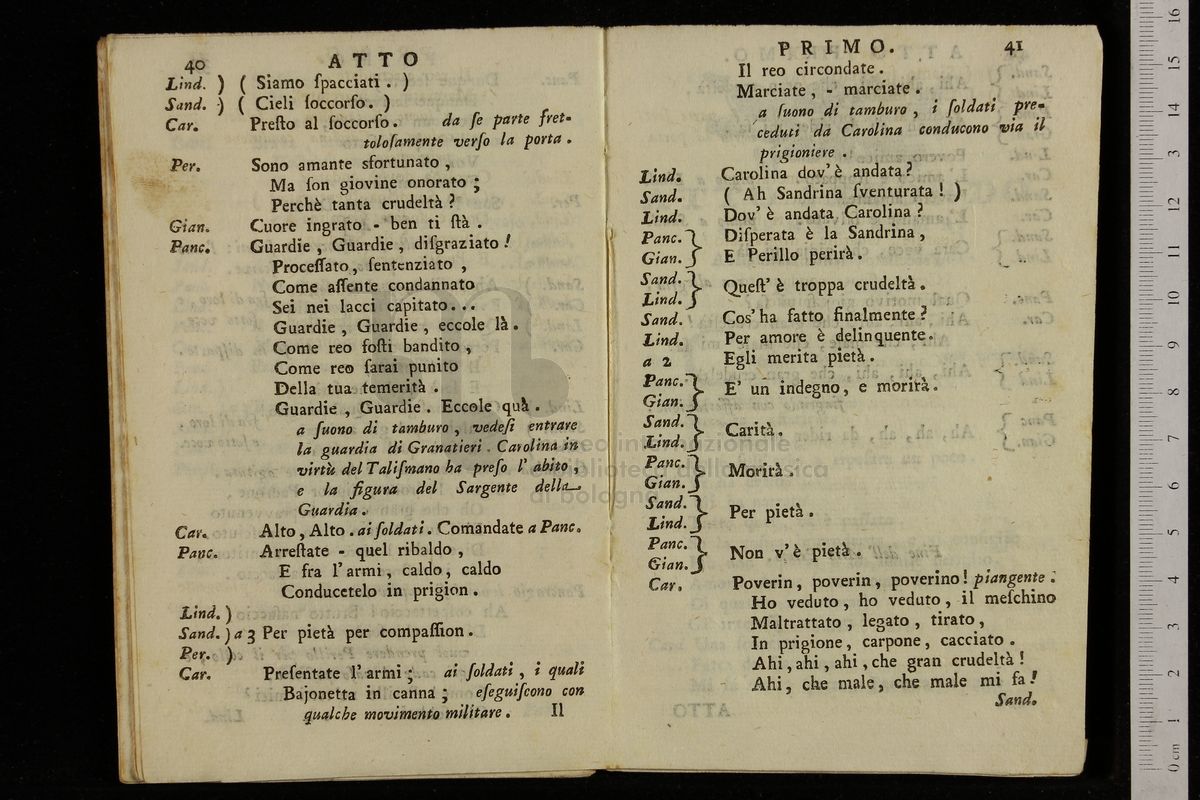 40 ATTO
Lind. ) ( Siamo ſpacciati . )
Sand. ) ( Cieli ſoccorſo. )
Car. Preſto al ſoccorſo. da ſe parte fret-
toloſamente verſo la porta .
Per. Sono amante sfortunato ,
Ma ſon giovine onorato ;
Perchè tanta crudeltà ?
Gian. Cuore ingrato - ben ti ſtà .
Panc. Guardie , Guardie , diſgraziato !
Proceſſato, ſentenziato ,
Come aſſente condannato
Sei nei lacci capitato...
Guardie , Guardie , eccole là.
Come reo foſti bandito ,
Come reo ſarai punito
Della tua temerità .
Guardie , Guardie . Eccole quà .
a ſuono di tamburo , vedeſi entrare
la guardia di Granatieri . Carolina in
virtù del Taliſmano ha preſo l' abito ,
e la figura del Sargente della
Guardia .
Car. Alto, Alto . ai ſoldati. Comandate a Panc.
Panc. Arreſtate - quel ribaldo ,
E fra l'armi, caldo, caldo
Conducetelo in prigion .
Lind. )
Sand. ) a 3 Per pietà per compaſſion.
Per. )
Car. Preſentate l'armi ; ai ſoldati , i quali
Bajonetta in canna ; eſeguiſcono con
qualche movimento militare . Il
PRIMO. 41
Il reo circondate .
Marciate , - marciate .
a ſuono di tamburo , i ſoldati pre-
ceduti da Carolina conducono via il
prigioniere .
Lind. Carolina dov' è andata ?
Sand. ( Ah Sandrina ſventurata ! )
Lind. Dov' è andata Carolina ?
Panc. } Diſperata è la Sandrina ,
Gian. } E Perillo perirà.
Sand. }
Lind. } Queſt' è troppa crudeltà .
Sand. Cos' ha fatto finalmente ?
Lind. Per amore è delinquente.
a 2 Egli merita pietà .
Panc. }
Gian. } E' un indegno, e morirà.
Sand. }
Lind. } Carità.
Panc. }
Gian. } Morirà .
Sand. }
Lind. } Per pietà .
Panc. }
Gian. } Non v' è pietà .
Car. Poverin, poverin, poverino! piangente .
Ho veduto, ho veduto, il meſchino
Maltrattato , legato , tirato ,
In prigione, carpone, cacciato .
Ahi, ahi, ahi, che gran crudeltà !
Ahi, che male, che male mi fa !
Sand.
museo internazionale
e biblioteca della musica
di bologna
0 cm 1 2 3 4 5 6 7 8 9 10 11 12 13 14 15 16